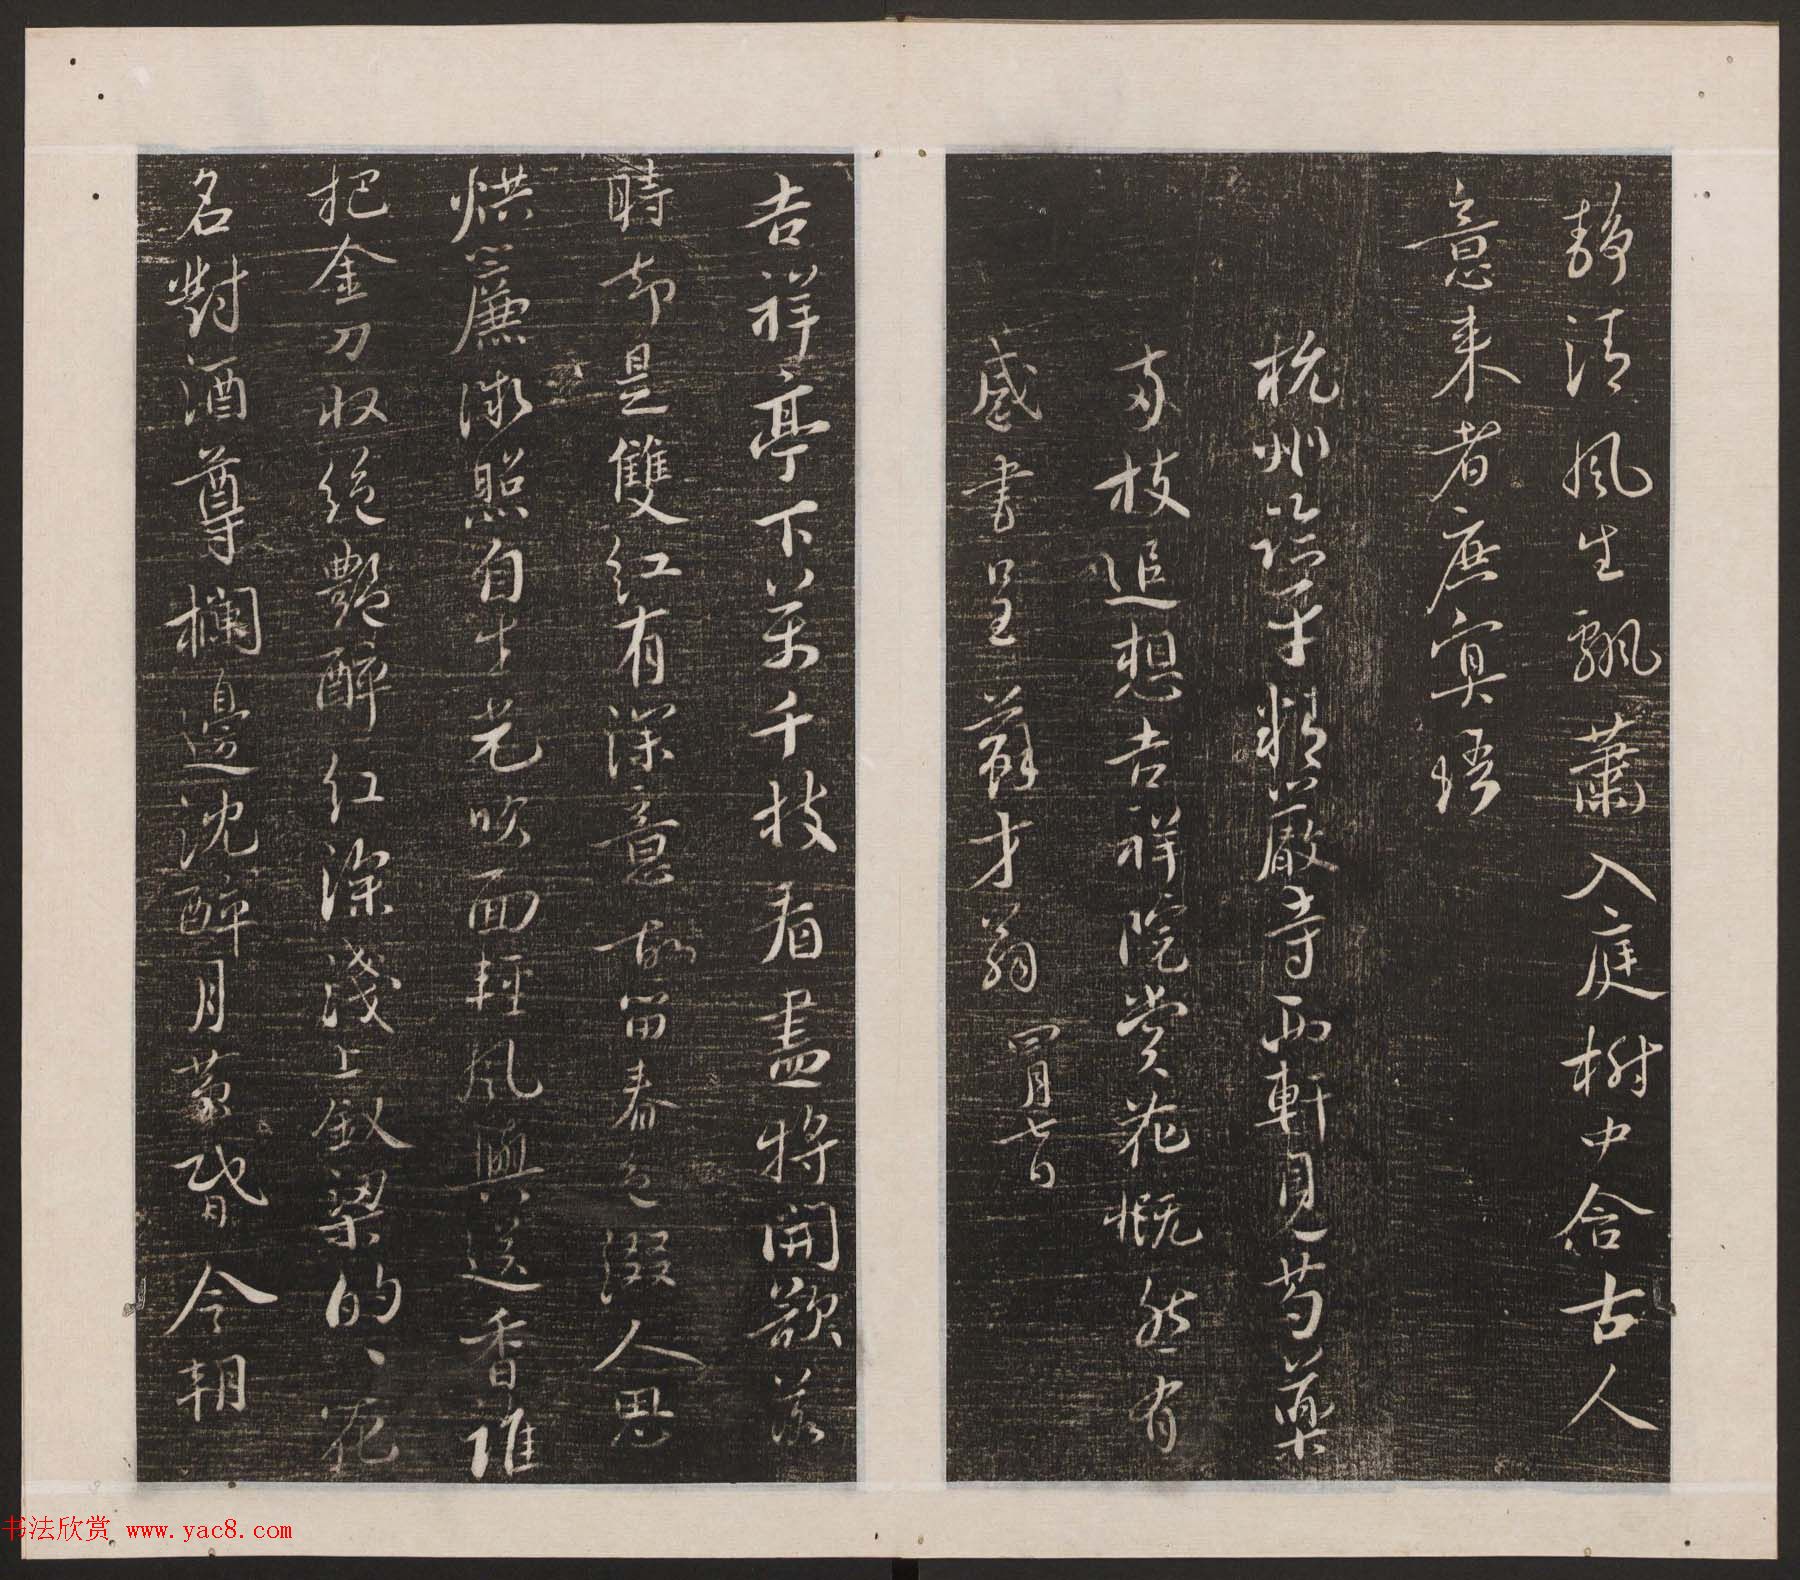 静清風生飄蕭入庭樹中含古人
意来者庶冥悟
杭州臨平精嚴寺西軒見芍藥
两枝追想吉祥院賞花慨然有
感書呈蘇才翁 四月七日
吉祥亭下萬千枝看盡將開欲落
時却是雙紅有深意故留春色綴人思
烘簾微照自生光吹面輕風與送香誰
把金刀収絕艷醉紅深淺上釵梁的、花
名對酒尊欄邊沈醉月黄昏今朝
书法欣赏 www.yac8.com